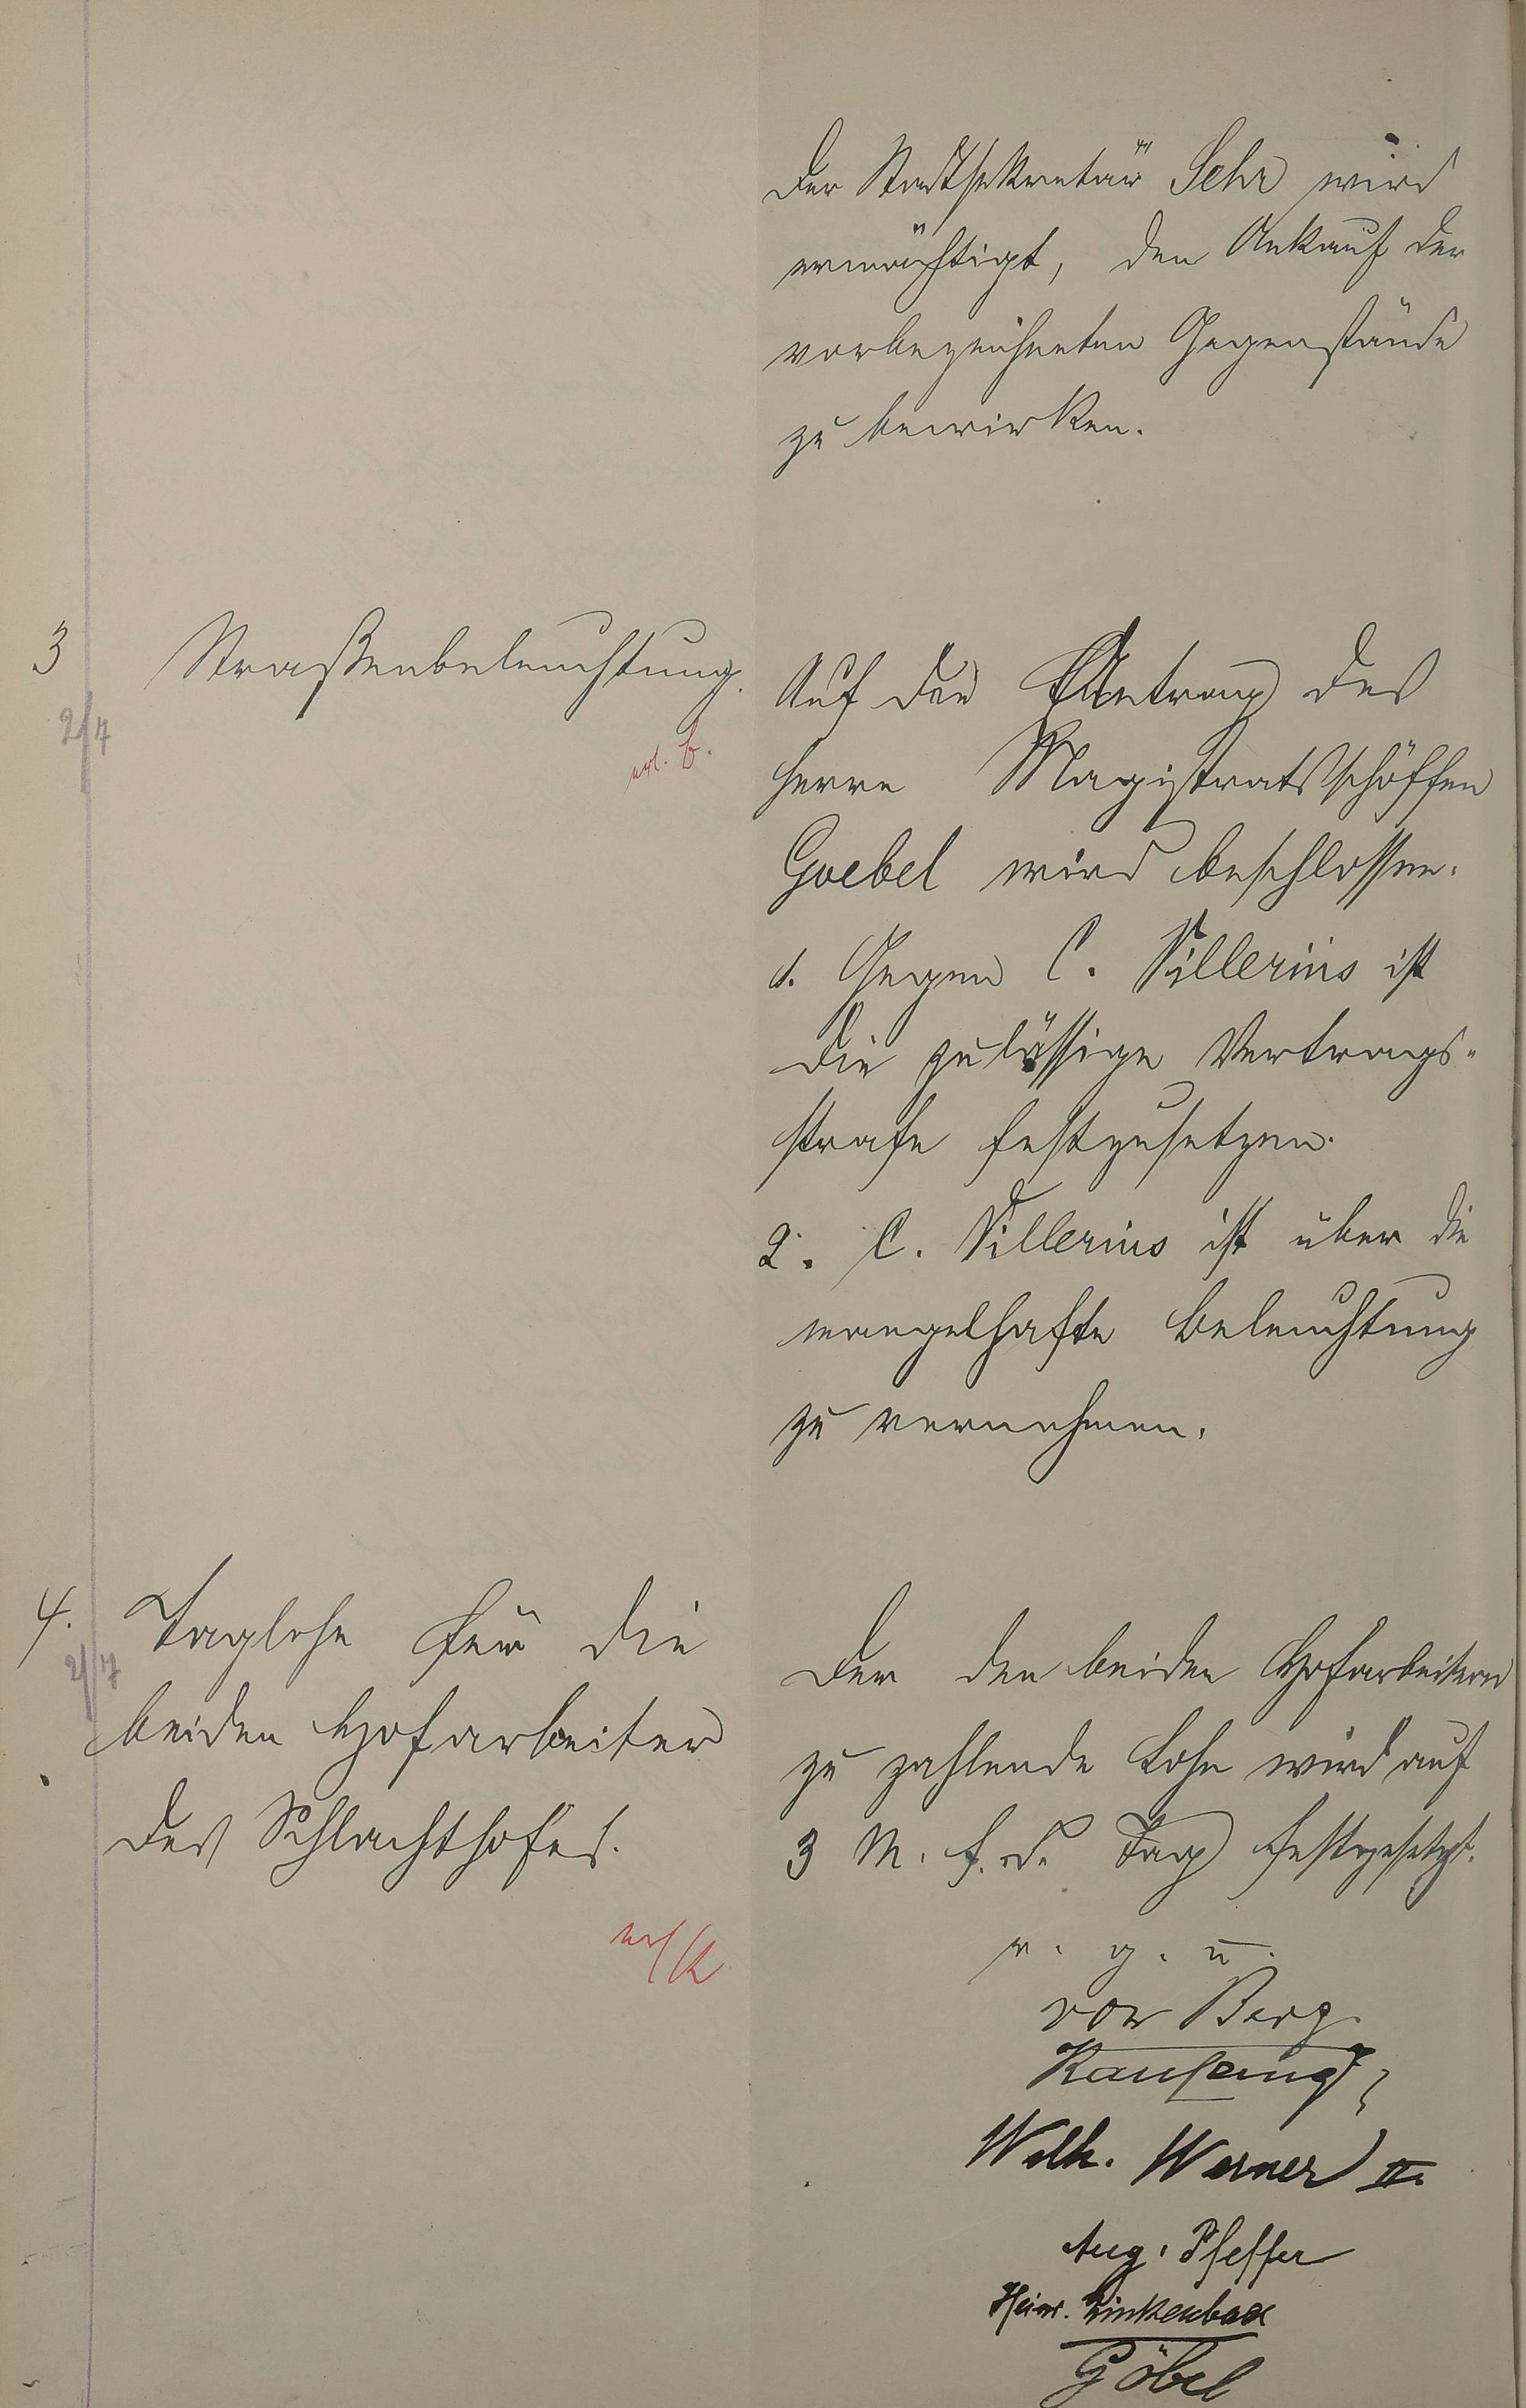 Der Stadtsekretär Sehr wird
ermächtigt, den Ankauf der
vorbezeichneten Gegenstände
zu bewirken.
3 Straßenbeleuchtung.
2/7
erl. b.
Auf den Antrag des
Herrn Magistratsschöffen
Goebel wird beschlossen.
1. Gegen C. Villerius ist
die zulässige Vertrags-
strafe festzusetzen.
2. C. Villerius ist über die
mangelhafte Beleuchtung
zu vernehmen.
4. Taglohn für die
2/7
beiden Hofarbeiter
des Schlachthofes.
erl
Der den beiden Hofarbeitern
zu zahlende Lohn wird auf
3 M. f. d. Tag festgesetzt.
v. g. u.
von Berg.
Wilh. Werner II.
Aug. Pfeffer
Heinr. Linkenbach
Göbel